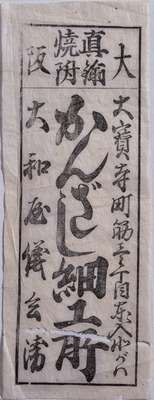 大阪
真鍮
焼附
大寳寺町筋壱丁目東入北がハ
かんざし細工所
大和屋儀兵衛